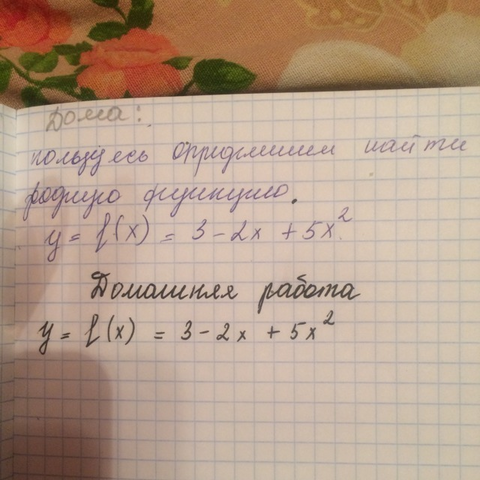 Дома:
пользуясь определением найти
функцию.
y = f(x) = 3 - 2x + 5x².
Домашняя работа
y = f(x) = 3 - 2x + 5x²